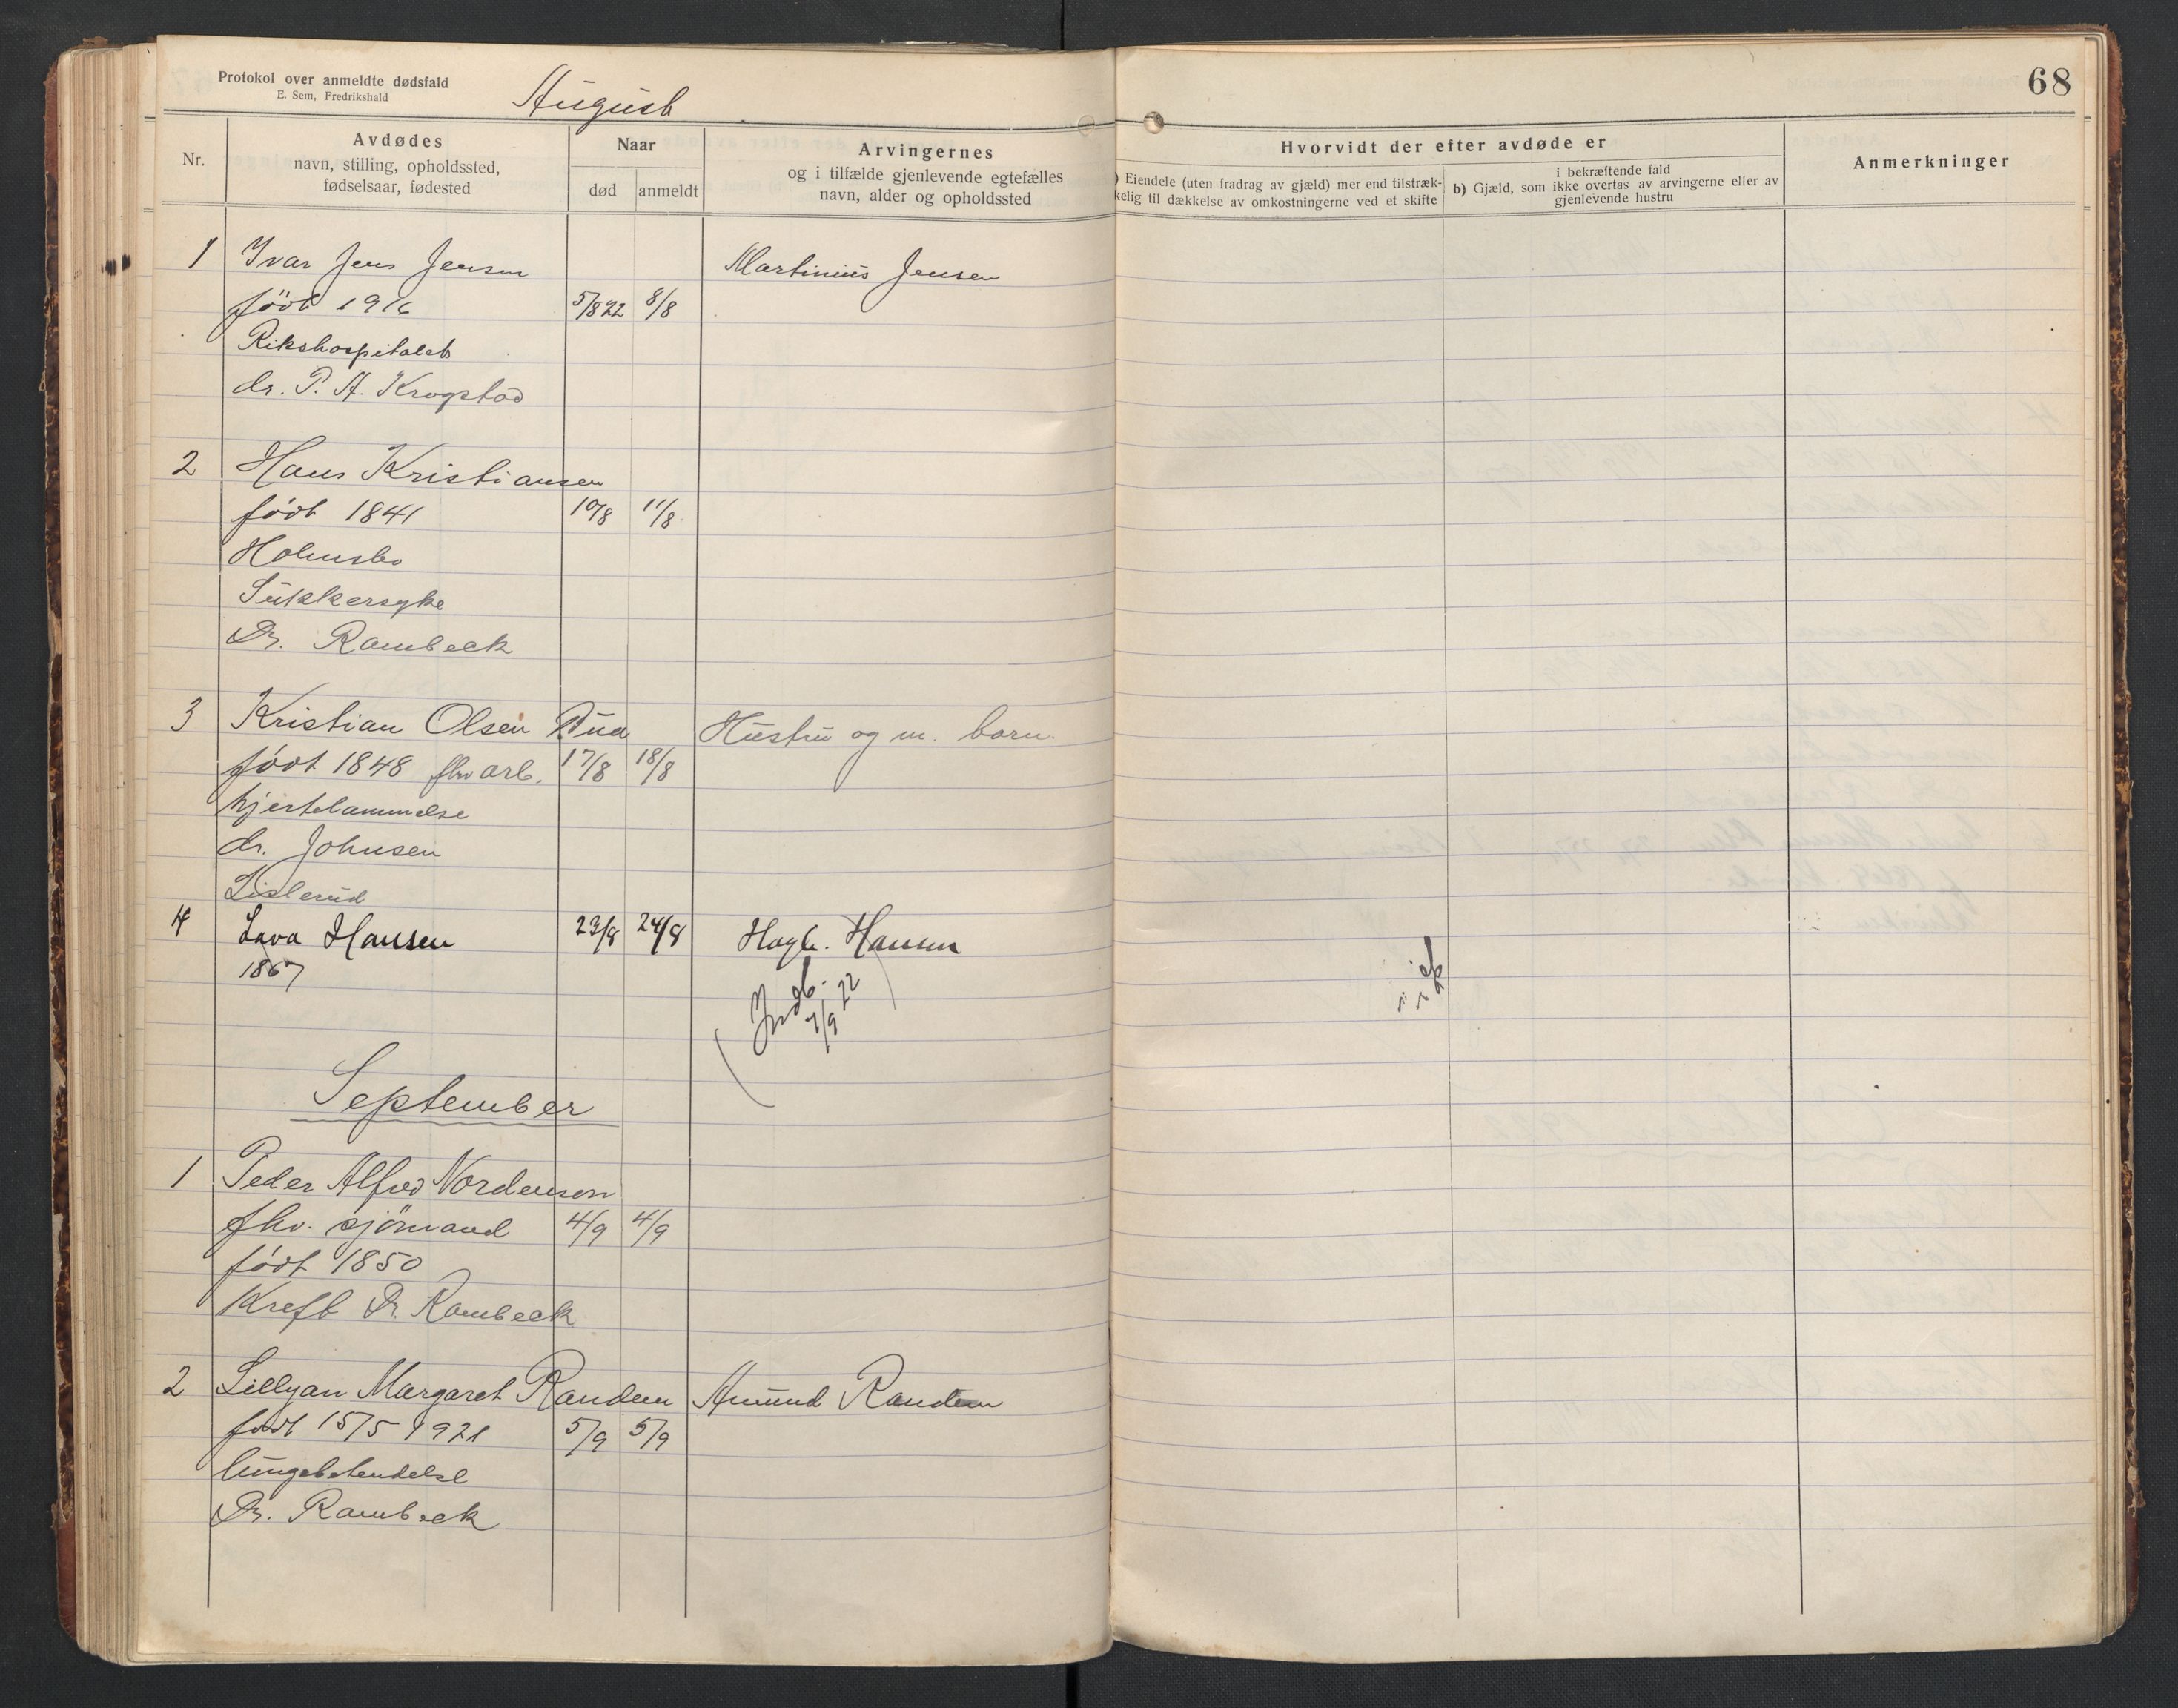 Protokol over anmeldte dødsfald
E. Sem, Fredrikshald
August
68
Nr.
Avdødes
navn, stilling, opholdssted,
fødselsaar, fødested
Naar
død anmeldt
Arvingernes
og i tilfælde gjenlevende egtefælles
navn, alder og opholdssted
Hvorvidt der efter avdøde er
) Eiendele (uten fradrag av gjæld) mer end tilstræk-
kelig til dækkelse av omkostningerne ved et skifte
i bekræftende fald
b) Gjæld, som ikke overtas av arvingerne eller av
gjenlevende hustru
Anmerkninger
1 Ivar Jens Jensen Martinius Jensen
født 1916 5/8 22 8/8
Rikshospitalet
dr. P. A. Krogstad
2 Hans Kristiansen
født 1841 10/8 11/8
Holmsbo
Sukkersyke
Dr. Rambeck
3 Kristian Olsen Hustru og m. barn
født 1848 fhv arb. 17/8 18/8
hjertelammelse
dr. Johnsen
Lislerud
4 Lava Hansen 23/8 24/8 Hagb. Hansen
1867
7/9 22
September
1 Peder Alfred Nordenson
fhv. sjömand 4/9 4/9
født 1850
Kreft Dr. Rambeck
2 Lillyan Margaret Randem Amund Randem
født 15/5 1921 5/9 5/9
lungebetendelse
Dr. Rambeck